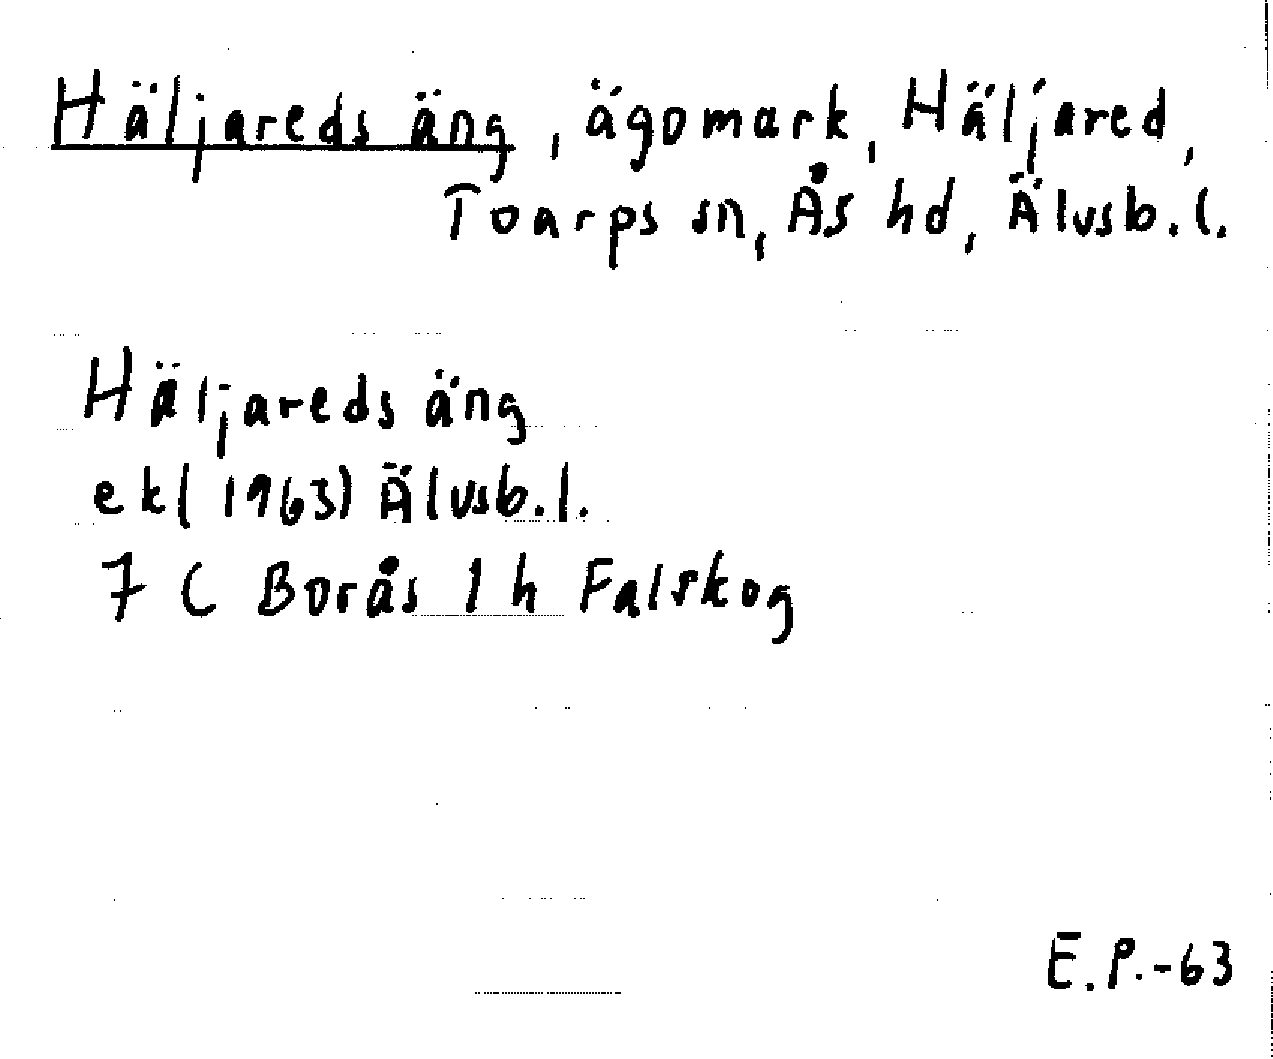 Häljareds äng, ägomark, Häljared,
Toarps sn, Ås hd, Älvsb.l.
Häljareds äng
ek(1963) Älvsb.l.
7 C Borås 1 h Falskog
E.P.-63